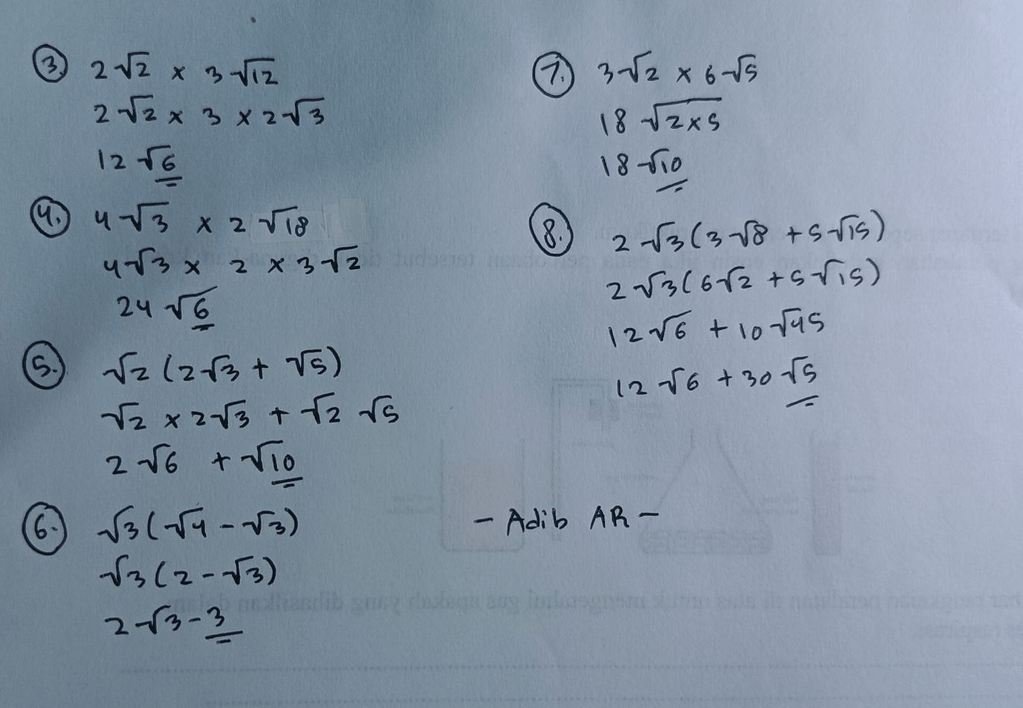 3. 2√2 × 3√12
2√2 × 3 × 2√3
12√6
4. 4√3 × 2√18
4√3 × 2 × 3√2
24√6
5. √2(2√3 + √5)
√2 × 2√3 + √2 √5
2√6 + √10
6. √3(√4 - √3)
√3(2 - √3)
2√3 - 3
7. 3√2 × 6√5
18√2×5
18√10
8. 2√3(3√8 + 5√15)
2√3(6√2 + 5√15)
12√6 + 10√45
12√6 + 30√5
- Adib AR -